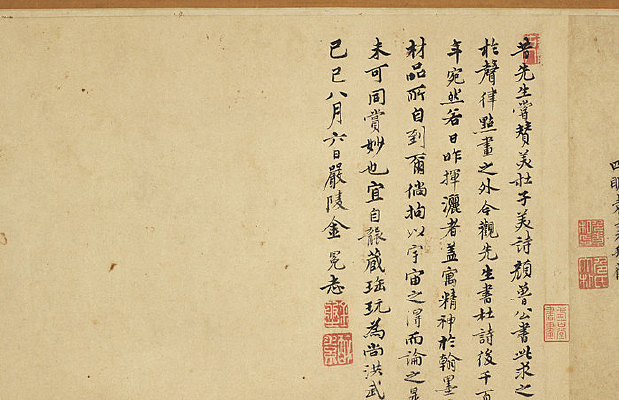 昔先生嘗贊美杜子美詩顏魯公書此求之
於聲律點畫之外今觀先生書杜詩後千百
年宛然若日昨揮灑者蓋寓精神於翰墨
材品所自到爾倘拘以宇宙之得而論之是
未可同賞妙也宜自韞藏珤玩為尚洪武
己巳八月六日嚴陵金冕志